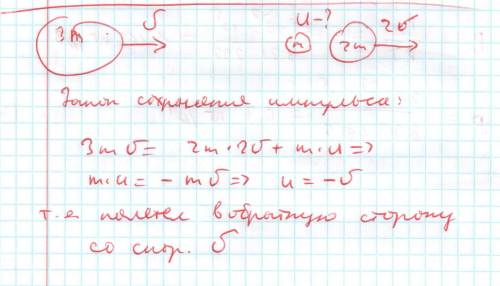 3m υ u-? m 2m 2υ
Закон сохранения импульса:
3mυ = 2m·2υ + m·u =>
m·u = -mυ => u = -υ
т.е полетел в обратную сторону
со скор. υ